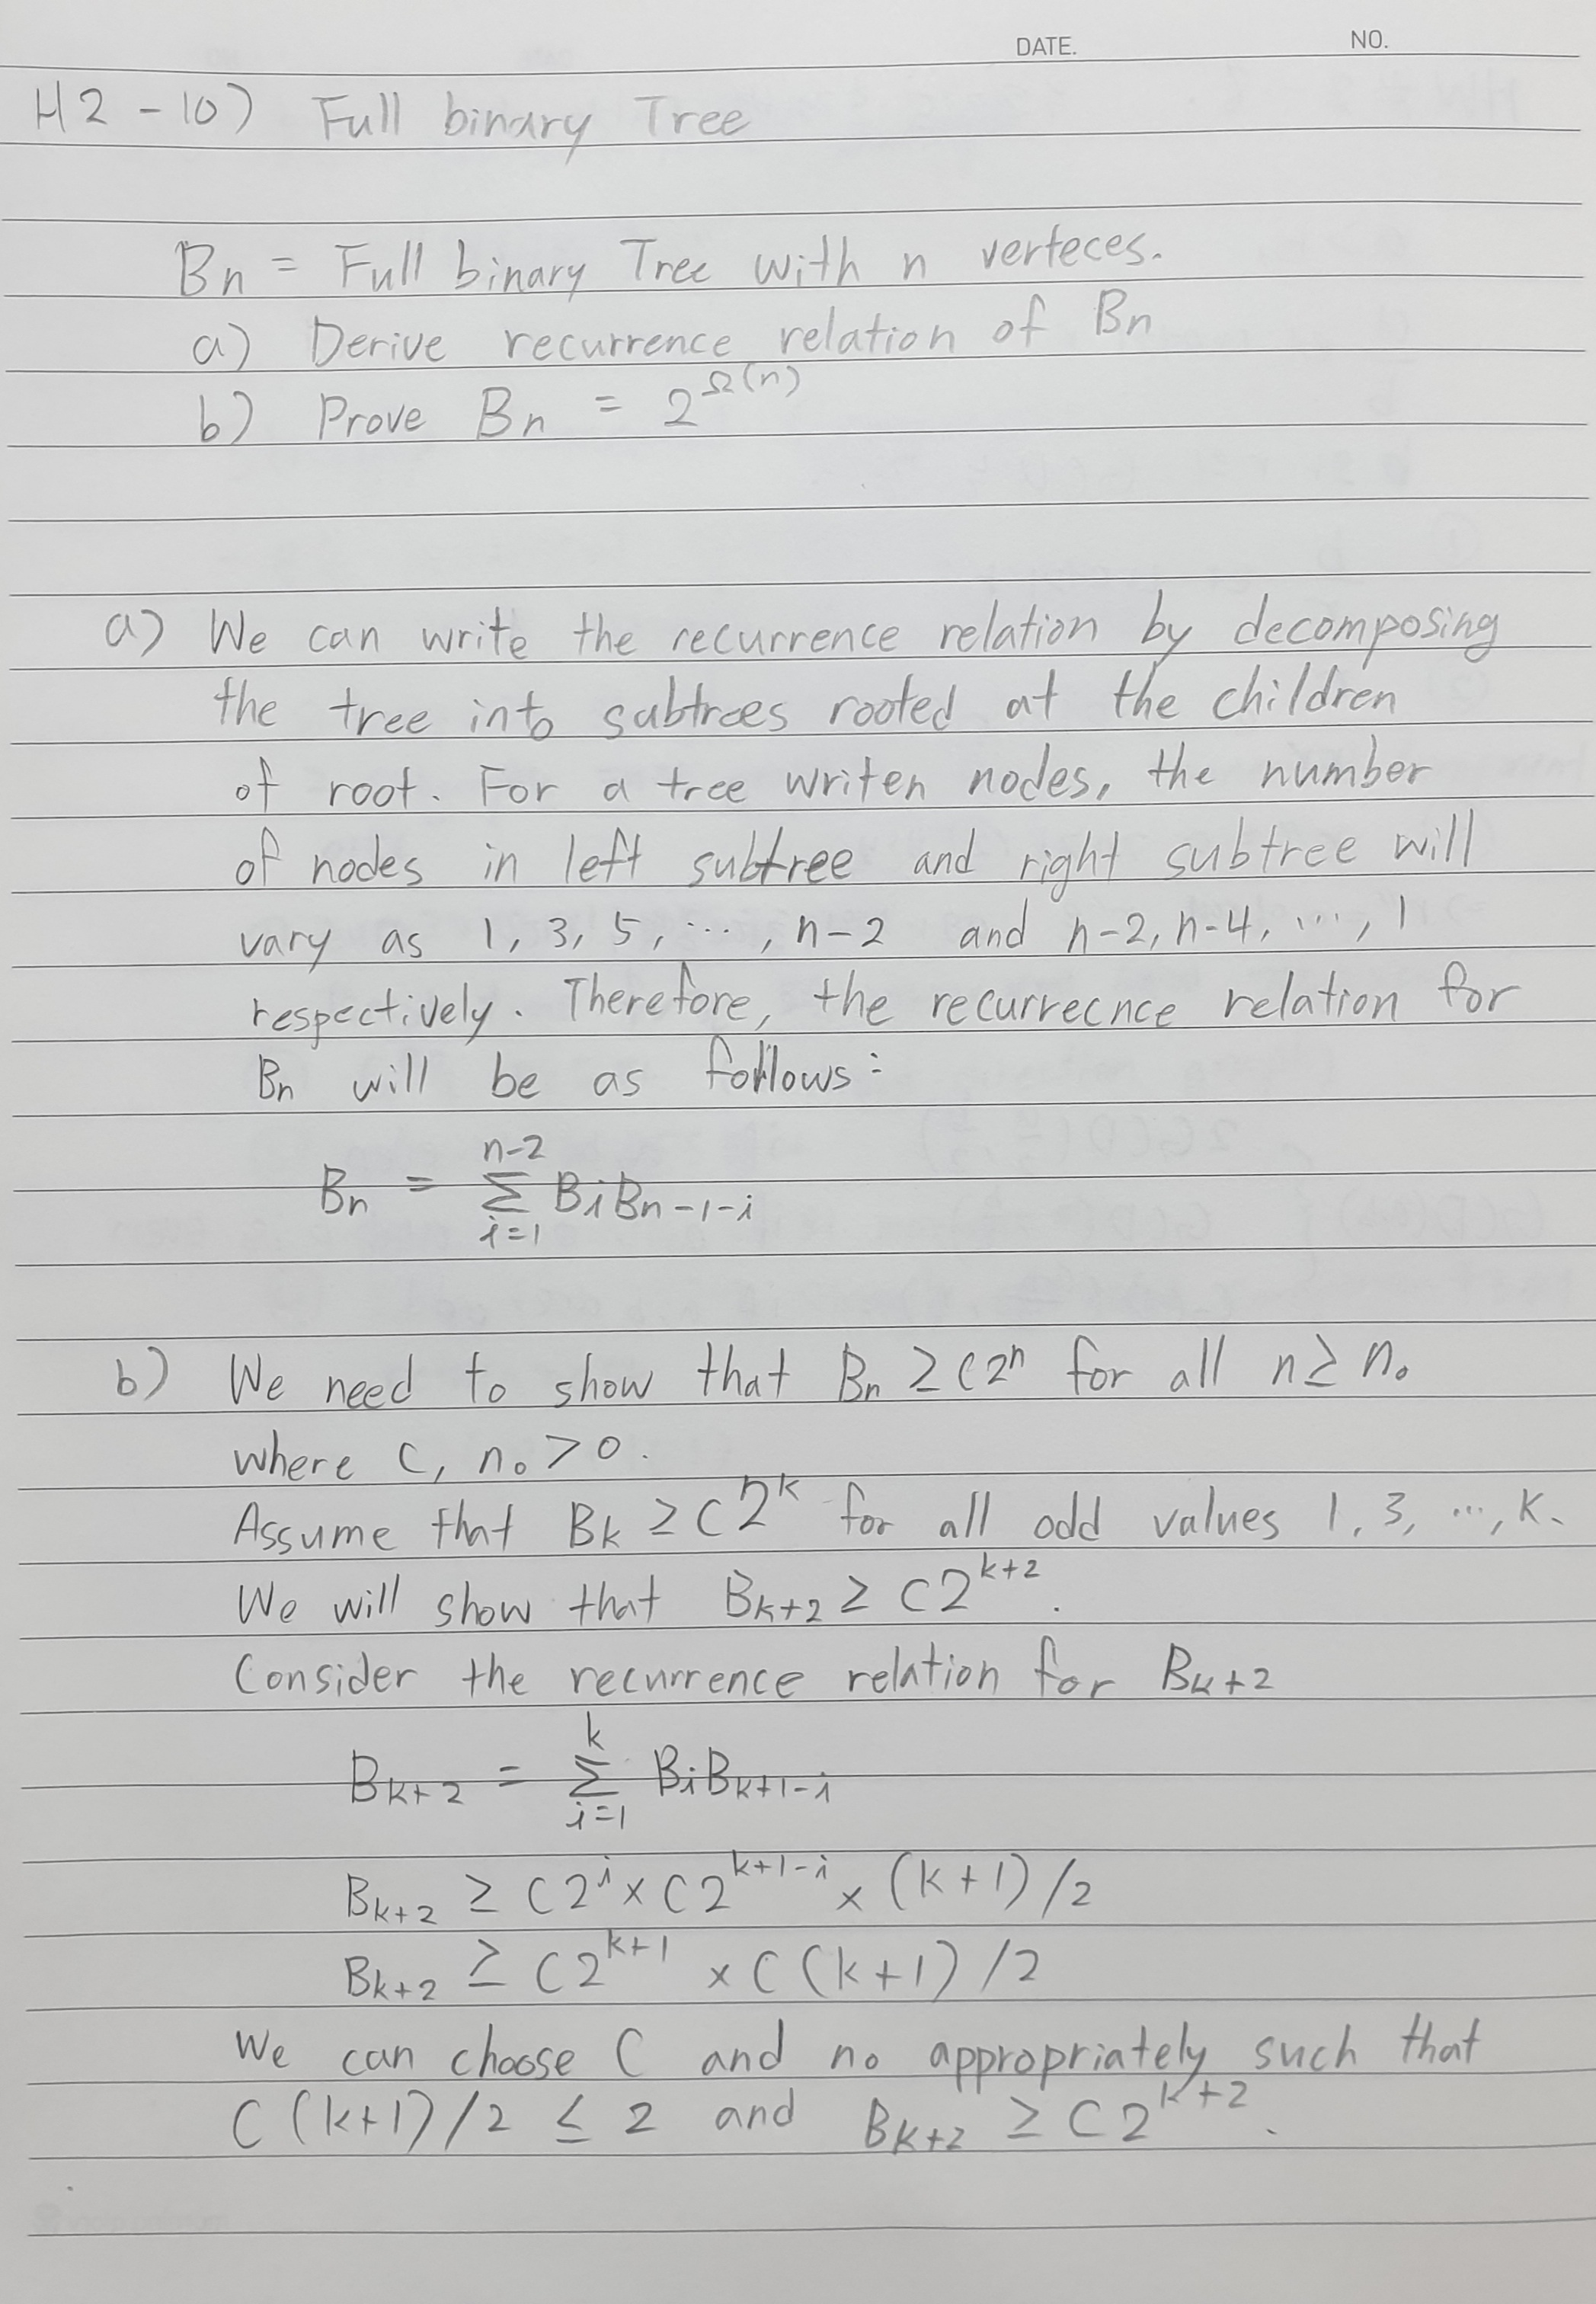 DATE. NO.
H2-10) Full binary Tree
Bn = Full binary Tree with n verteces.
a) Derive recurrence relation of Bn
b) Prove Bn = 2^Ω(n)
a) We can write the recurrence relation by decomposing
the tree into subtrees rooted at the children
of root. For a tree writen nodes, the number
of nodes in left subtree and right subtree will
vary as 1, 3, 5, ..., n-2 and n-2, n-4, ..., 1
respectively. Therefore, the recurrecnce relation for
Bn will be as follows:
Bn = Σ_{i=1}^{n-2} Bi Bn-1-i
b) We need to show that Bn ≥ C2^n for all n ≥ n₀
where C, n₀ > 0.
Assume that Bk ≥ C2^k for all odd values 1, 3, ..., k.
We will show that Bk+2 ≥ C2^{k+2}.
Consider the recurrence relation for Bk+2
Bk+2 = Σ_{i=1}^{k} Bi Bk+1-i
Bk+2 ≥ C2^i × C2^{k+1-i} × (k+1)/2
Bk+2 ≥ C2^{k+1} × C(k+1)/2
We can choose C and n₀ appropriately such that
C(k+1)/2 ≤ 2 and Bk+2 ≥ C2^{k+2}.